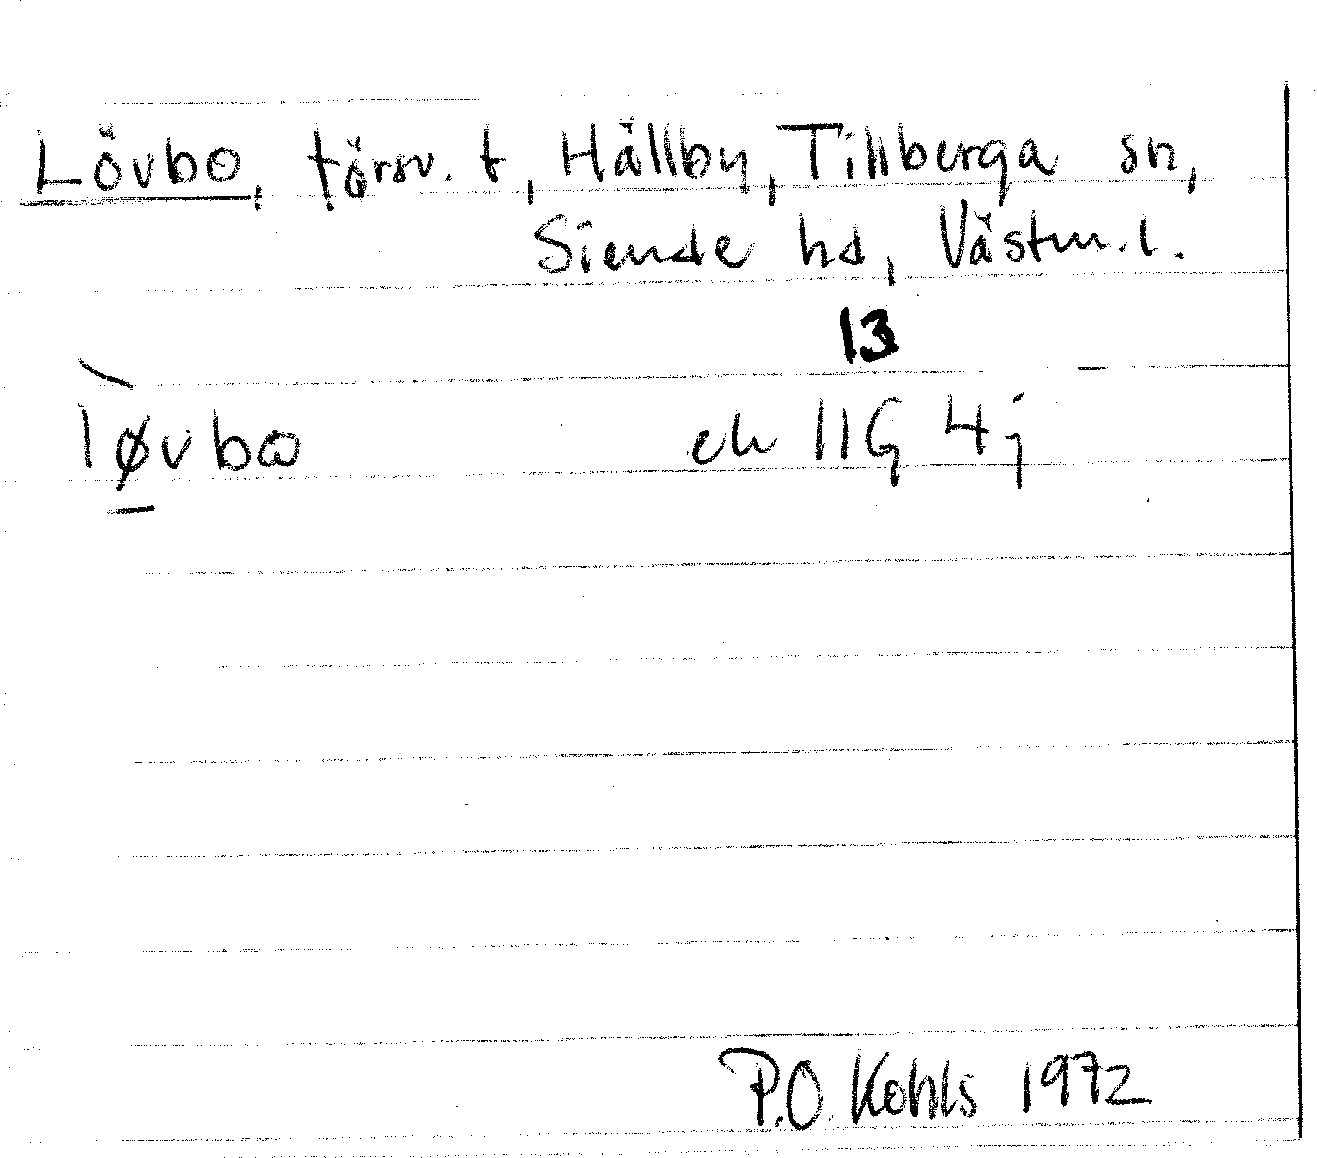 Lövbo, försv. t, Hällby, Tillberga sn,
Siende hd, Västm.l.
13
løvbω ek 11G 4j
P.O. Kohls 1972